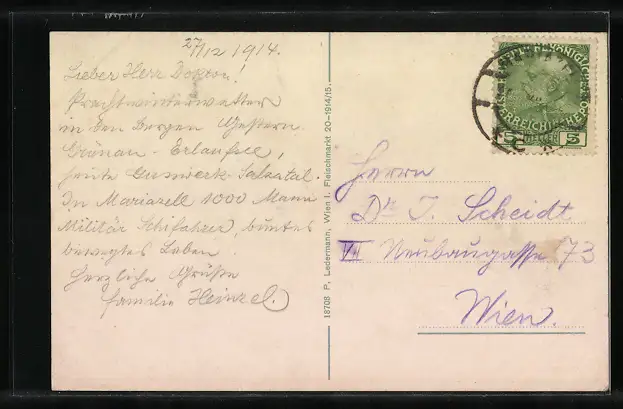 27/12 1914.
Lieber Herr Doktor!
Prachtwinterwetter
in den Bergen. Gestern
Grünau - Erlaufsee,
heute Gusswerk - Salzatal.
In Mariazell 1000 Mann
Militär Schifahrer, buntes
bewegtes Leben.
Herzliche Grüße
Familie Heinzel.
18708 P. Ledermann, Wien I. Fleischmarkt 20-1914/15.
5 HELLER 5
Herrn
Dr. J. Scheidt
VII Neubaugasse 73
Wien.